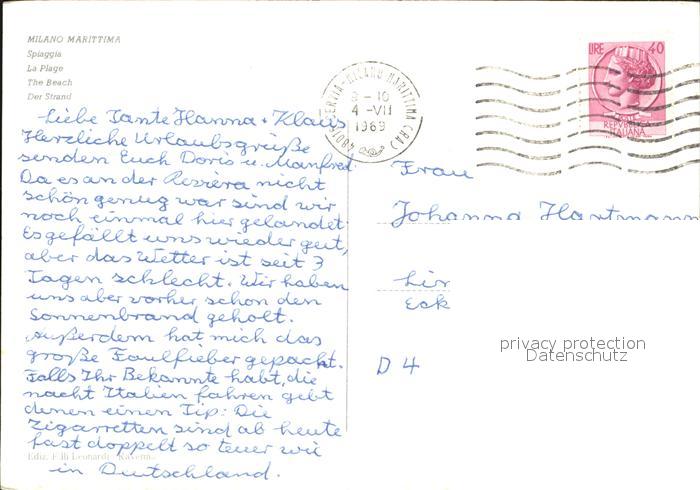 MILANO MARITTIMA
Spiaggia
La Plage
The Beach
Der Strand
MILANO MARITTIMA (RA)
8-10
4-VII
1969
LIRE 40
REPVBBLICA
ITALIANA
Liebe Tante Hanna + Klaus
Herzliche Urlaubsgrüße
senden Euch Doris u. Manfred.
Da es an der Reviera nicht
schön genug war sind wir
noch einmal hier gelandet.
Es gefällt uns wieder gut,
aber das Wetter ist seit 3
Tagen schlecht. Wir haben
uns aber vorher schon den
Sonnenbrand geholt.
Außerdem hat mich das
große Faulfieber gepackt.
Falls Ihr Bekannte habt, die
nacht Italien fahren gebt
denen einen Tip: Die
Zigarretten sind ab heute
fast doppelt so teuer wie
in Deutschland.
Ediz. F.lli Leonardi - Ravenna
Frau
Johanna Hartmann
Lir
Eck
D 4
privacy protection
Datenschutz